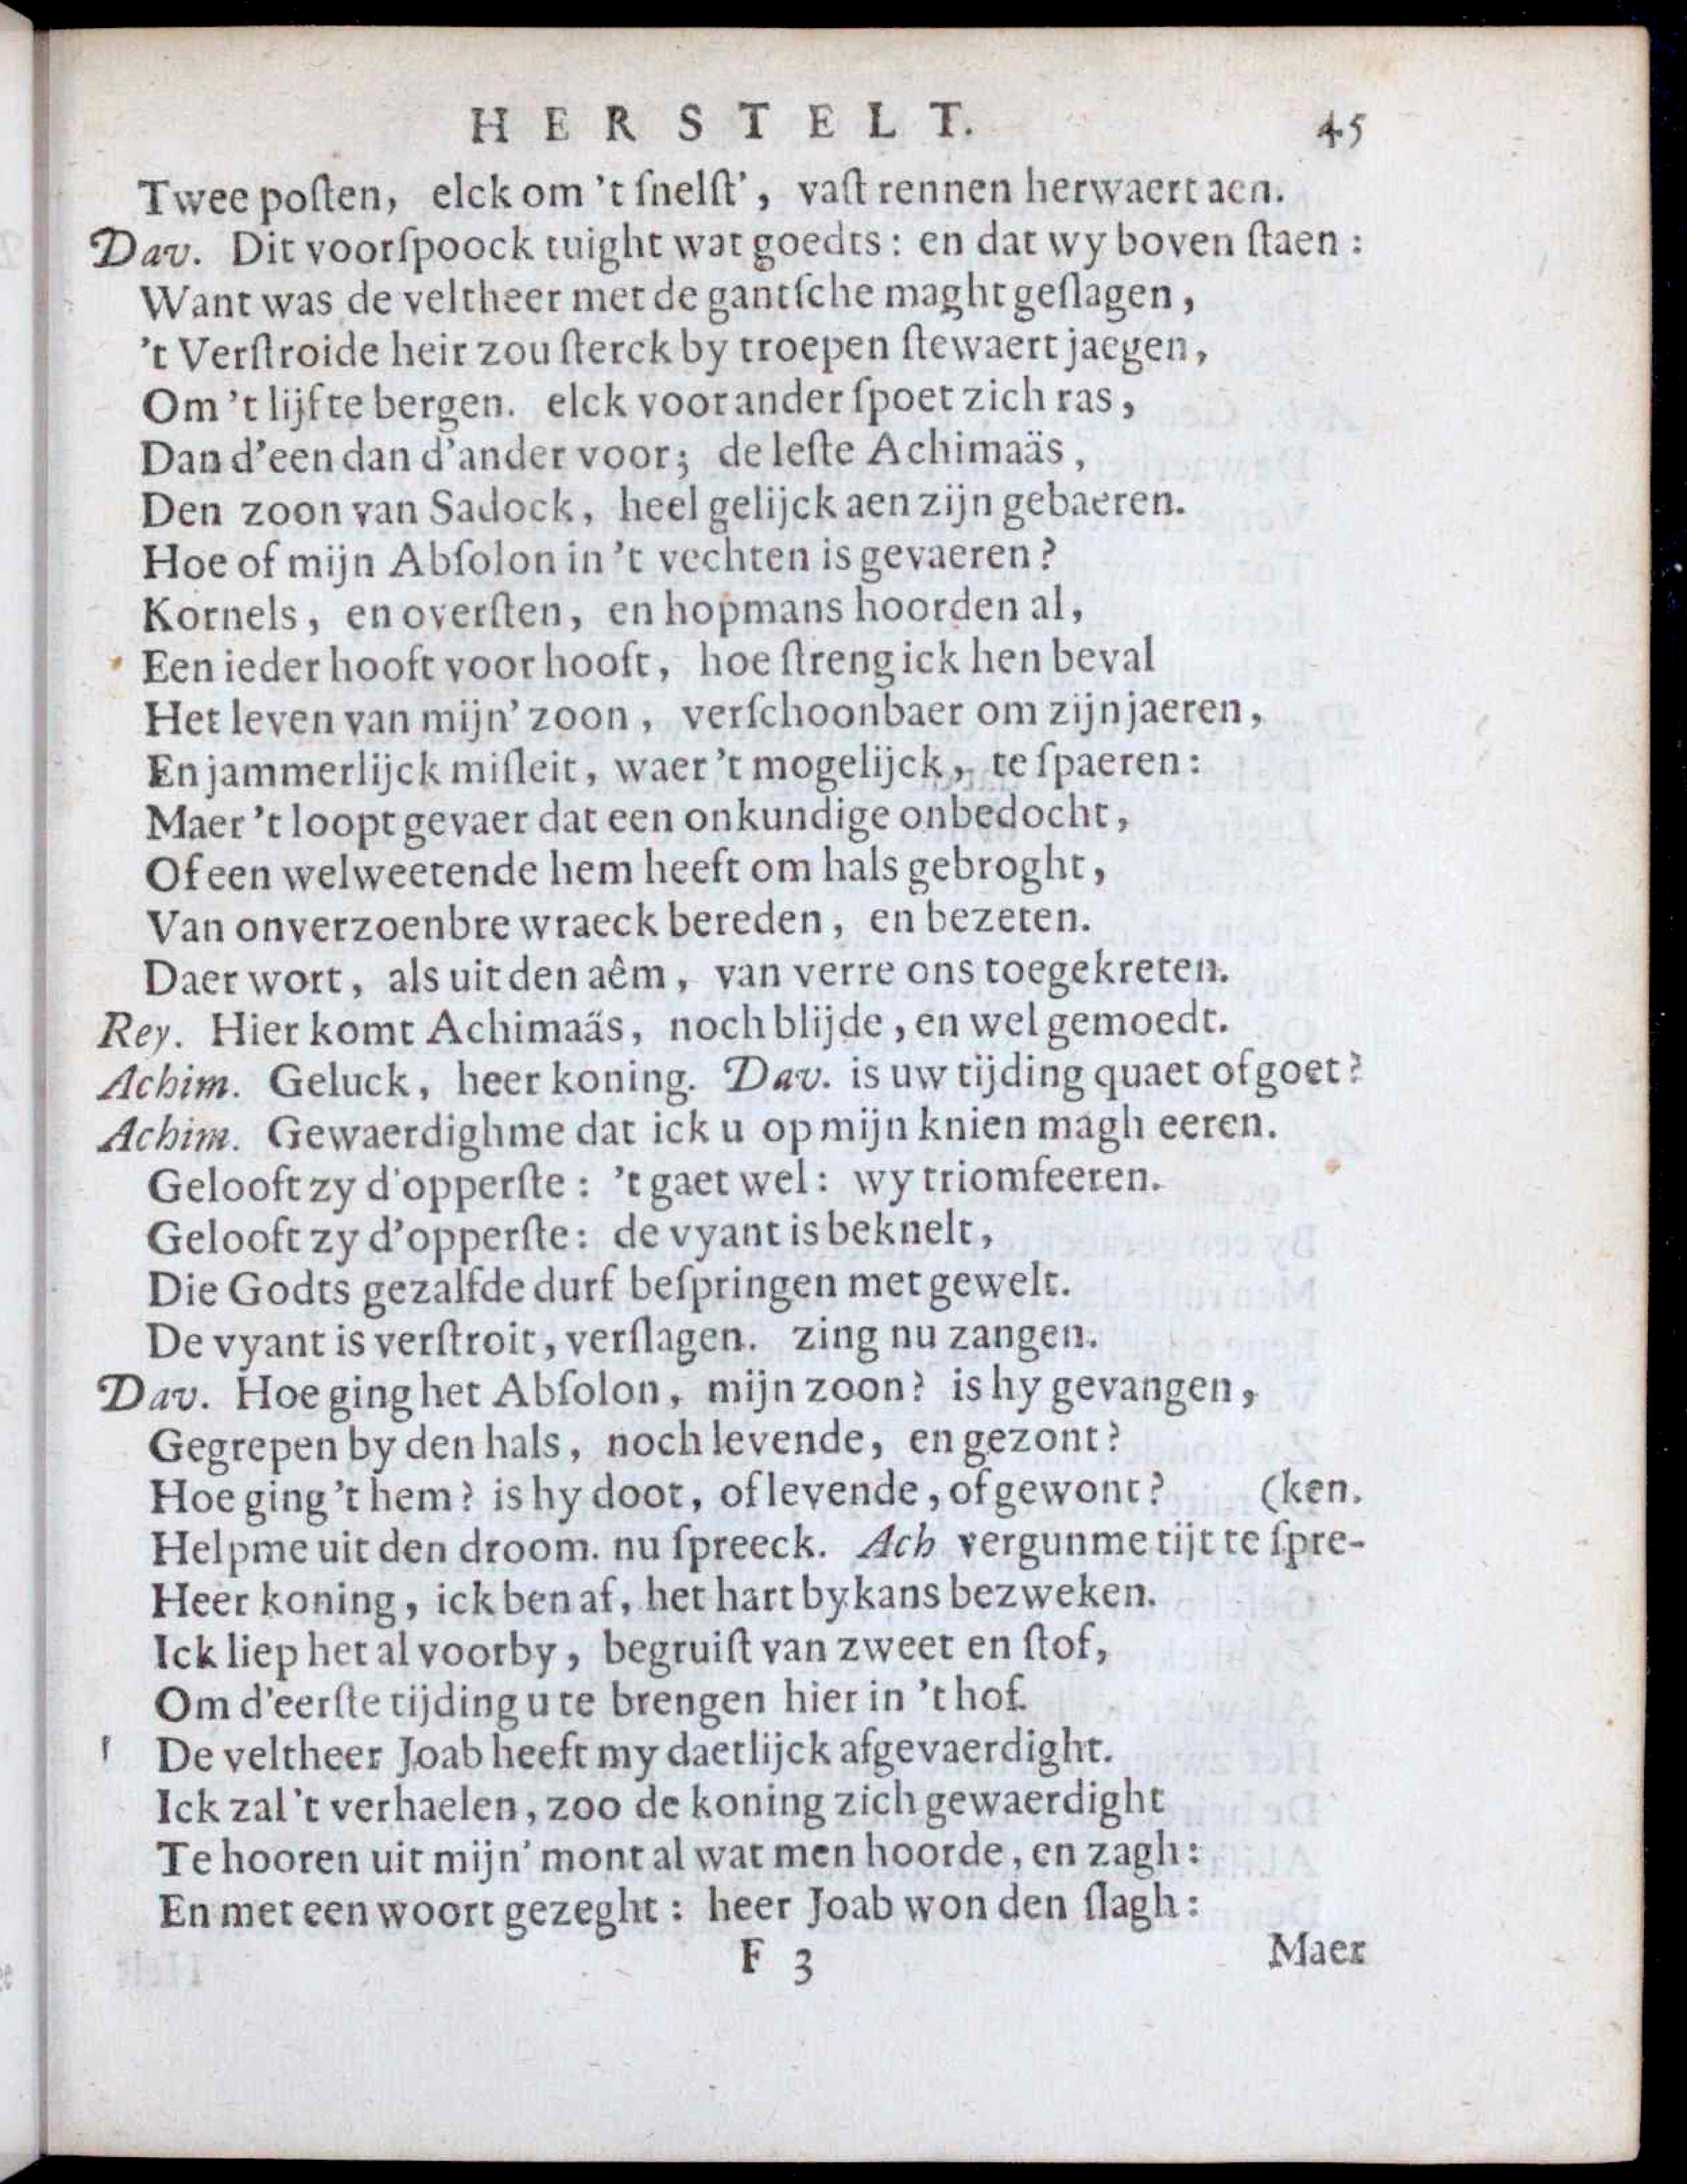 HERSTELT. 45
Twee poſten, elck om 't ſnelſt', vaſt rennen herwaert aen.
Dav. Dit voorſpoock tuight wat goedts: en dat wy boven ſtaen:
Want was de veltheer met de gantſche maght geſlagen,
't Verſtroide heir zou ſterck by troepen ſtewaert jaegen,
Om 't lijf te bergen. elck voor ander ſpoet zich ras,
Dan d'een dan d'ander voor; de leſte Achimaäs,
Den zoon van Sadock, heel gelijck aen zijn gebaeren.
Hoe of mijn Abſolon in 't vechten is gevaeren?
Kornels, en overſten, en hopmans hoorden al,
Een ieder hooft voor hooft, hoe ſtreng ick hen beval
Het leven van mijn' zoon, verſchoonbaer om zijn jaeren,
En jammerlijck miſleit, waer 't mogelijck, te ſpaeren:
Maer 't loopt gevaer dat een onkundige onbedocht,
Of een welweetende hem heeft om hals gebroght,
Van onverzoenbre wraeck bereden, en bezeten.
Daer wort, als uit den aêm, van verre ons toegekreten.
Rey. Hier komt Achimaäs, noch blijde, en wel gemoedt.
Achim. Geluck, heer koning. Dav. is uw tijding quaet of goet?
Achim. Gewaerdigh me dat ick u op mijn knien magh eeren.
Gelooft zy d'opperſte: 't gaet wel: wy triomfeeren.
Gelooft zy d'opperſte: de vyant is beknelt,
Die Godts gezalfde durf beſpringen met gewelt.
De vyant is verſtroit, verſlagen. zing nu zangen.
Dav. Hoe ging het Abſolon, mijn zoon? is hy gevangen,
Gegrepen by den hals, noch levende, en gezont?
Hoe ging 't hem? is hy doot, of levende, of gewont? (ken.
Help me uit den droom. nu ſpreeck. Ach vergun me tijt te ſpre-
Heer koning, ick ben af, het hart bykans bezweken.
Ick liep het al voorby, begruiſt van zweet en ſtof,
Om d'eerſte tijding u te brengen hier in 't hof.
De veltheer Joab heeft my daetlijck afgevaerdight.
Ick zal 't verhaelen, zoo de koning zich gewaerdight
Te hooren uit mijn' mont al wat men hoorde, en zagh:
En met een woort gezeght: heer Joab won den ſlagh:
F 3 Maer